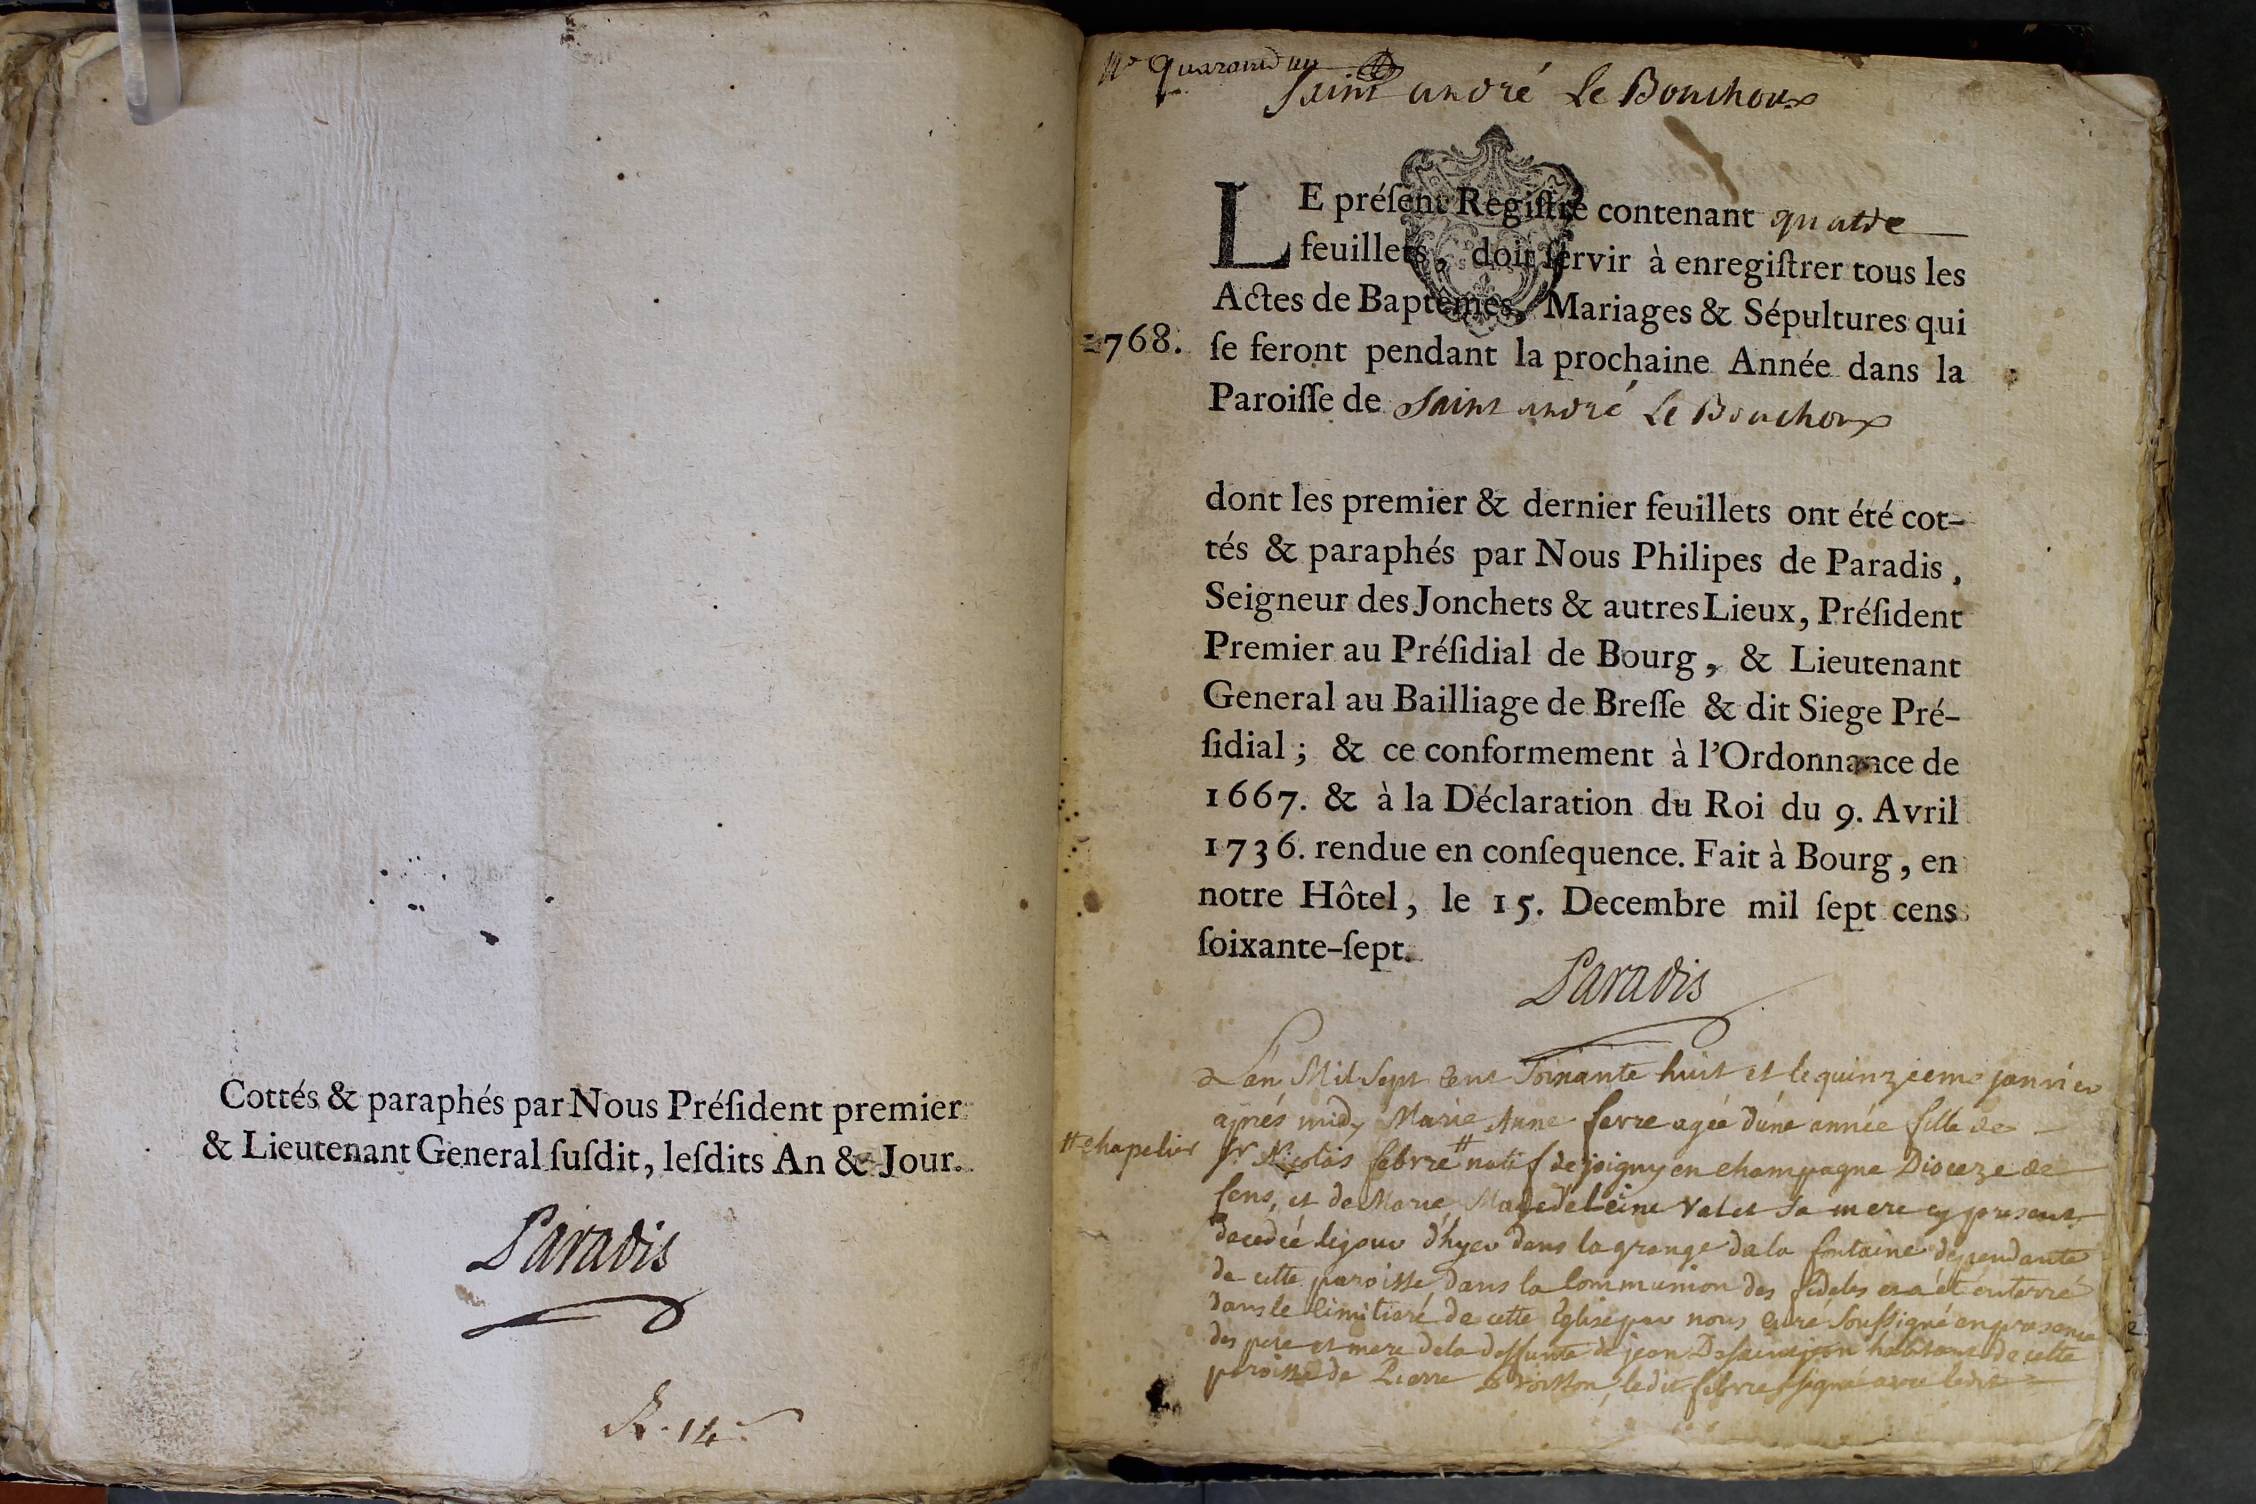 Cottés & paraphés par Nous Préſident premier
& Lieutenant General ſuſdit, leſdits An & Jour.
Paradis
R. 14
Saint andré Le Bouchoux
LE préſent Regiſtre contenant quatre
feuillets, doit ſervir à enregiſtrer tous les
Actes de Baptêmes, Mariages & Sépultures qui
1768. ſe feront pendant la prochaine Année dans la
Paroiſſe de Saint andré Le Bouchoux
dont les premier & dernier feuillets ont été cot-
tés & paraphés par Nous Philipes de Paradis,
Seigneur des Jonchets & autres Lieux, Préſident
Premier au Préſidial de Bourg, & Lieutenant
General au Bailliage de Breſſe & dit Siege Pré-
ſidial ; & ce conformement à l'Ordonnance de
1667. & à la Déclaration du Roi du 9. Avril
1736. rendue en conſequence. Fait à Bourg, en
notre Hôtel, le 15. Decembre mil ſept cens
ſoixante-ſept.
Paradis
L'an Mil Sept Cent Soixante huit et le quinzieme janvier
aprés midy Marie Anne favre agée d'une année fille de
# chapelier
Sr Nicolas febvre # natif de joigny en champagne Dioceze de
sens, et de Marie Magedeleine Valet Sa mere cy presents
decedée le jour d'hyer dans la grange de la fontaine dependante
de cette paroisse dans la Communion des fideles et a été enterré
dans le Cimitiere de cette Eglise par nous curé Soussigné en presence
des pere et mere de la deffunte de jean habitant de cette
paroisse de Pierre ledit febvre signé avec ledit